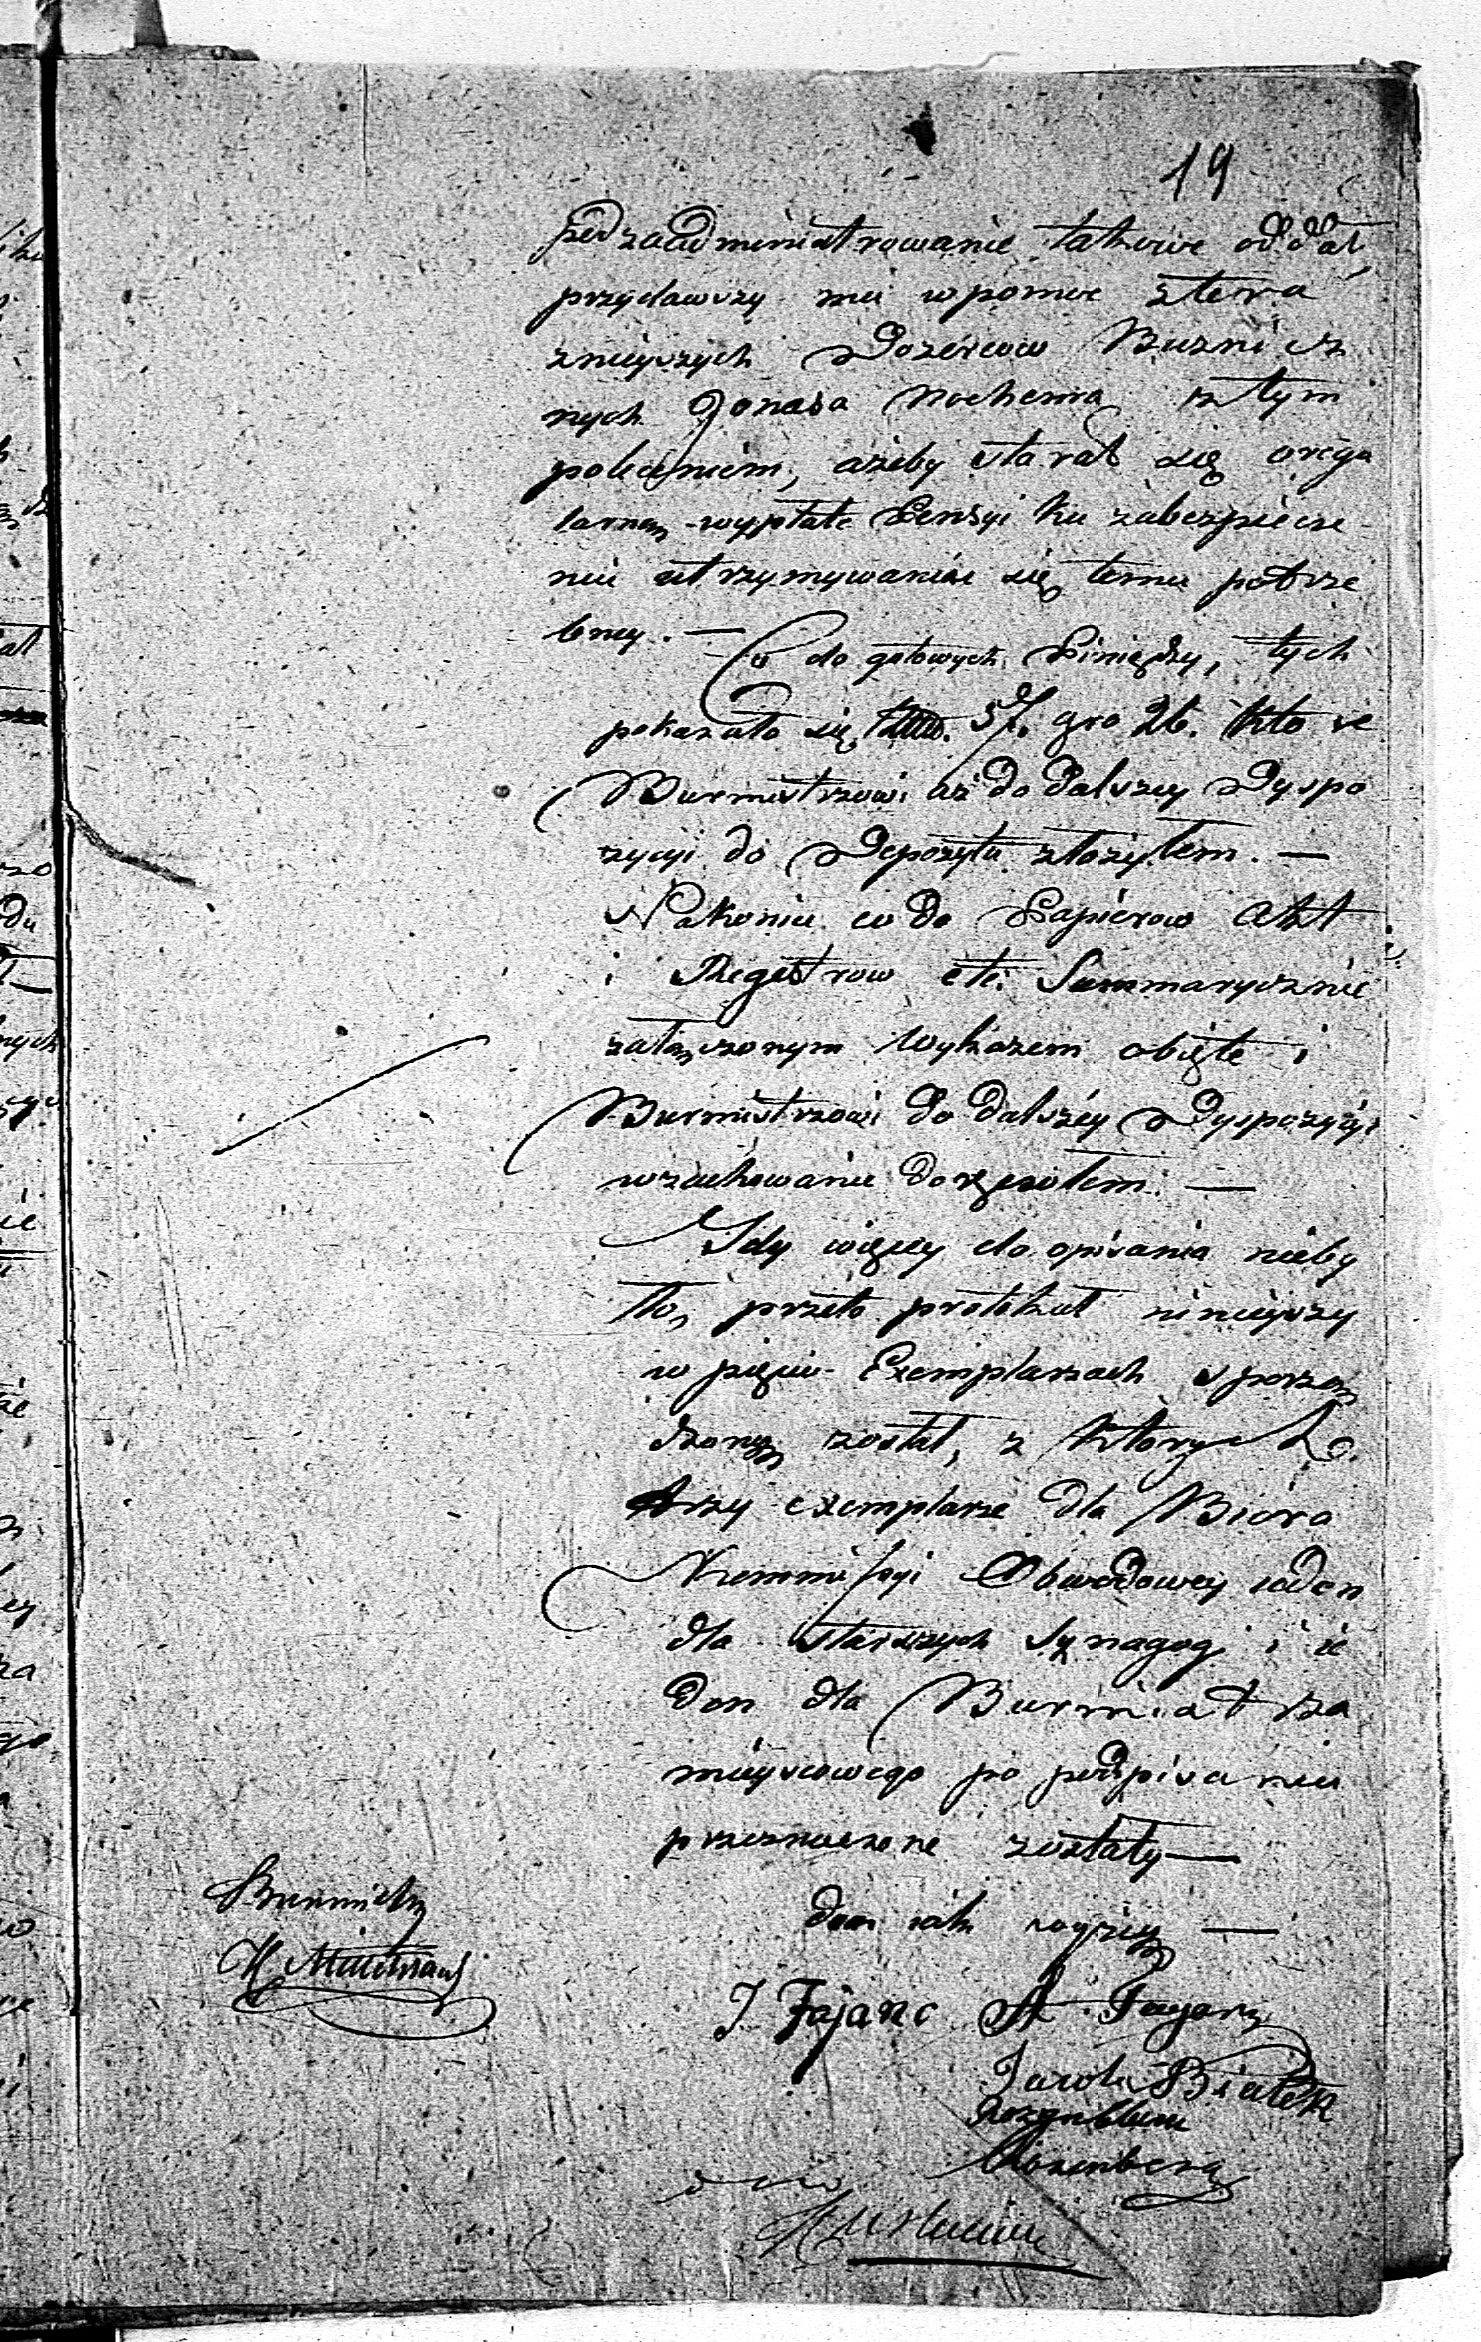 19
pod zaadministrowanie takowe oddał,
przydawszy mu w pomoc z tera
znieyszych Dozorcow Buzni cz
nych Jonasa Nochema z tym
poleceniem, ażeby starał się o rega
larną wypłatę Pensyi ku zabezpiecze
niu utrzymywania się temu potrze
bney. —
Co do gotowych Pieniędzy, tych
pokazało się 57. gro 26. kto re
Burmistrzowi aż do dalszey Dyspo
zycyi do Depozytu złożyłem. —
Nakoniec co do Papierow Akt
i Regestrow etc. Summarycznie
załączonym Wykazem obięte i
Burmistrzowi do dalszéy Dyspozycyi
w zachowanie doręczołem. —
Gdy więcey do opisania nieby
ło, przeto protokuł ninieyszy
w pięciu Exemplarzach sporzą
dzony został, z ktorych
trzy exemplarze dla Bióra
Kommissyi Obwodowey ieden
dla Starszych Synagogi i ie
den dla Burmistrza
mieyscowego po podpisaniu
przeznaczone zostały —
dan iak wyżey —
Burmistrz
J Fajanc
Jacob Białek
Rozynblum
Rozenberg